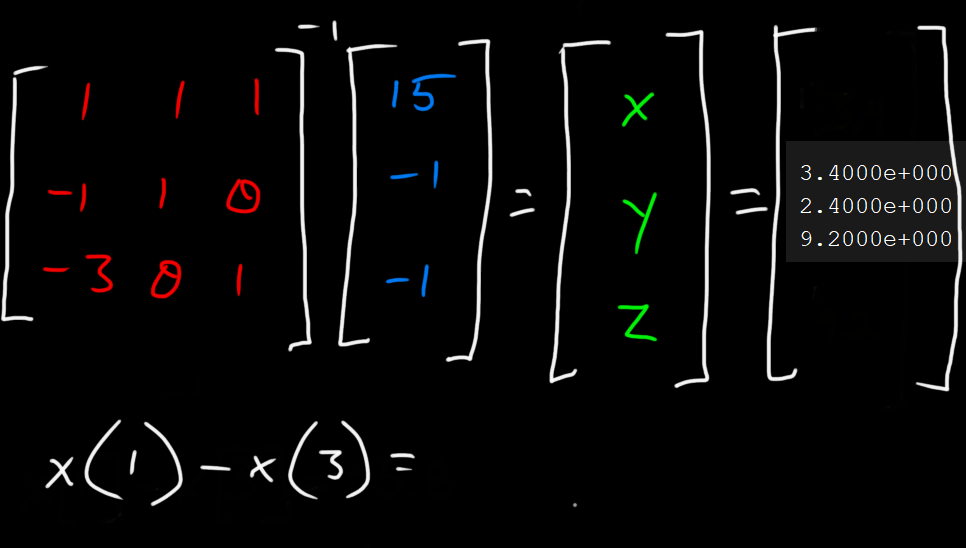 [1 1 1; -1 1 0; -3 0 1]⁻¹ [15; -1; -1] = [x; y; z] = [3.4000e+000; 2.4000e+000; 9.2000e+000]
x(1) - x(3) =